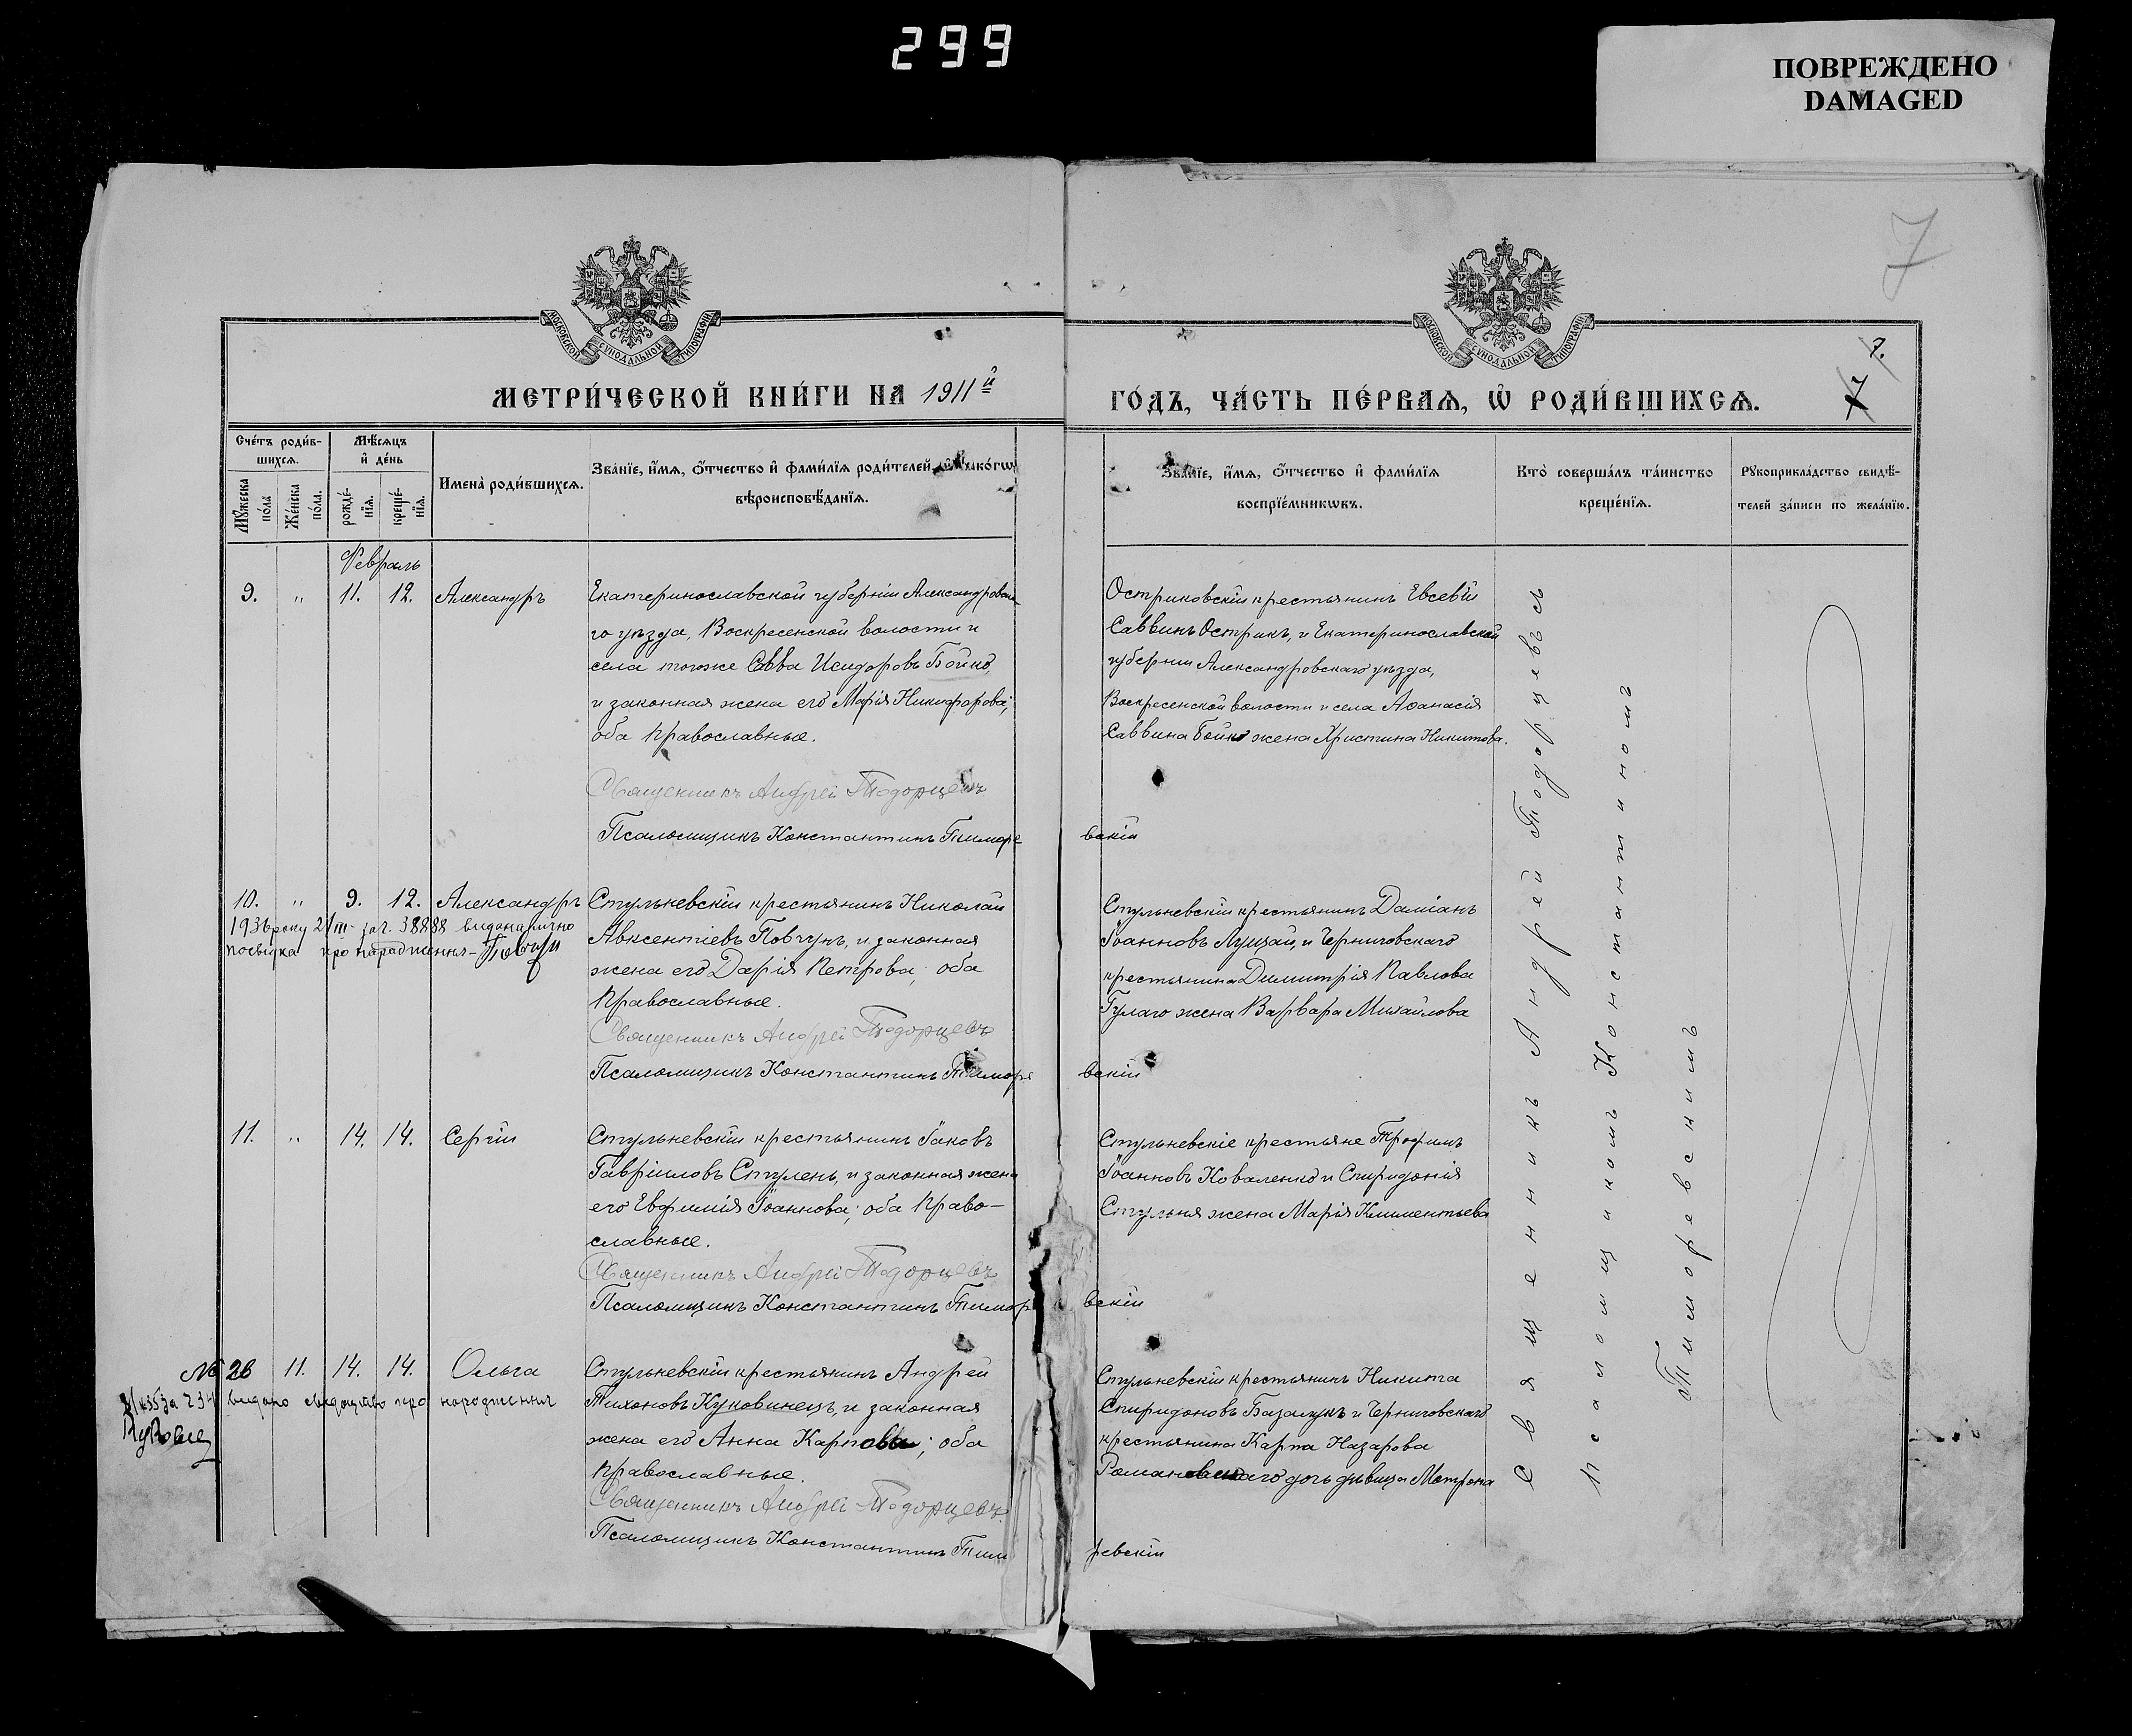 299
ПОВРЕЖДЕНО
DAMAGED
7
МОСКОВСКОЙ СУНОДАЛЬНОЙ ТИПОГРАФІИ
МОСКОВСКОЙ СУНОДАЛЬНОЙ ТИПОГРАФІИ
7.
7
МЕТРИ́ЧЕСКОЙ КНИ́ГИ НА 1911й
ГО́ДЪ, ЧА́СТЬ ПЕ́РВАЯ, Ѡ РОДИ́ВШИХСЯ.
Сче́тъ роди́вшихся.
Му́жеска по́ла
Же́нска по́ла.
Мѣ́сяцъ и де́нь
рожде́нїя.
креще́нїя.
Имена̀ роди́вшихся.
Зва́нїе, и́мя, о́тчество и фами́лїя роди́телей, и како́гѡ
вѣроисповѣ́данїя.
Зва́нїе, и́мя, о́тчество и фами́лїя
воспрїе́мникѡвъ.
Кто̀ соверша́лъ та́инство
креще́нїя.
Рукоприкла́дство свидѣ́-
телей за́писи по жела́нїю.
Февраль
9. " 11. 12. Александръ
Екатеринославской губерніи Александровска
го уѣзда, Воскресенской волости и
села тогоже Савва Исидоровъ Бойко,
и законная жена его Марія Никифорова;
оба православные.
Священникъ Андрей Тодорцевъ
Псаломщикъ Константинъ Тиморе
вскій
Остриковскій крестьянинъ Евсевій
Саввинъ Острикъ, и Екатеринославской
губерніи Александровскаго уѣзда,
Воскресенской волости и села Аѳанасія
Саввина Бойко жена Христина Никитова.
10. " 9. 12. Александръ
1936 року 21/III зач. 38888 видана
посвідка про народження
Стульневскій крестьянинъ Николай
Авксентіевъ Повчунъ, и законная
жена его Дарія Петрова; оба
православные.
Священникъ Андрей Тодорцевъ
Псаломщикъ Константинъ Тиморе
вскій
Стульневскій крестьянинъ Даміанъ
Іоанновъ Луцай, и Черниговскаго
крестьянина Димитрія Павлова
Гулаго жена Варвара Михайлова
11. " 14. 14. Сергій
Стульневскій крестьянинъ Іаковъ
Гавріиловъ Стулень, и законная жена
его Евфимія Іоаннова; оба право-
славные.
Священникъ Андрей Тодорцевъ
Псаломщикъ Константинъ Тимор
вскій
Стульневскіе крестьяне Трофимъ
Іоанновъ Коваленко и Спиридонія
Стульня жена Марія Климентьева
№ 26 11. 14. 14. Ольга
видано свідоцтво про народження
Стульневскій крестьянинъ Андрей
Тихоновъ Куковинецъ, и законная
жена его Анна Карпова; оба
православные.
Священникъ Андрей Тодорцевъ
Псаломщикъ Константинъ Тимо
ревскій
Стульневскій крестьянинъ Никита
Спиридоновъ Базалукъ и Черниговскаго
крестьянина Карпа Назарова
Романовскаго дочь дѣвица Матрона
Священникъ Андрей Тодорцевъ съ
псаломщикомъ Константиномъ
Тиморевскимъ